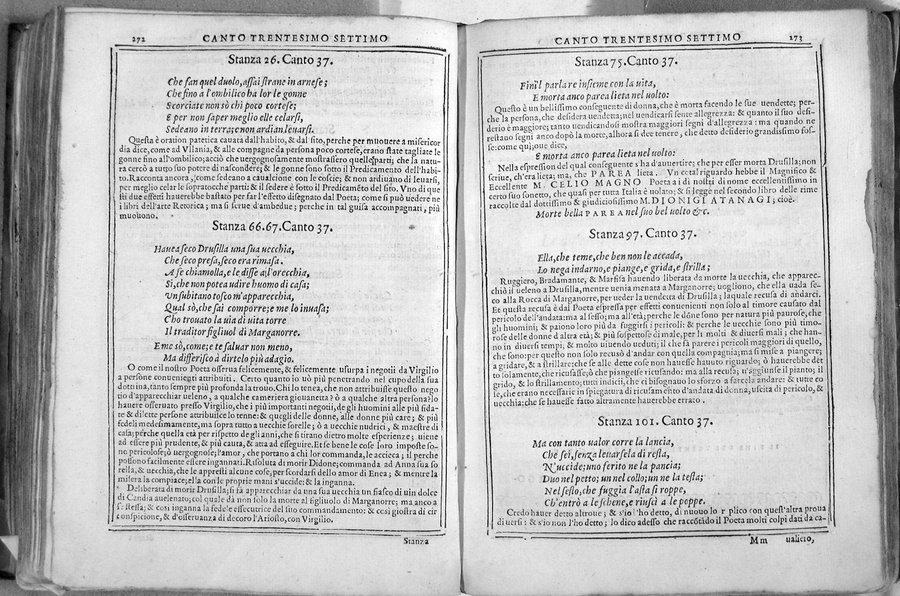 272
CANTO TRENTESIMO SETTIMO
Stanza 26. Canto 37.
Che fan quel duolo, assai strane in arnese;
Che fino a l'ombilico ha lor le gonne
Scorciate non sò chi poco cortese;
E per non saper meglio elle celarsi,
Sedeano in terra; e non ardian leuarsi.
Questa è oration patetica causata dall'habito, & dal sito, perche per muouere a misericor
dia dice, come ad Villania, & alle compagne da persona poco cortese, erano state tagliate le
gonne fino all'ombilico; acciò che uergognosamente mostrassero quelle parti; che la natu-
ra cercò a tutto suo potere di nasconder e; & le gonne sono sotto il Predicamento dell'habi-
to. Racconta ancora, come sedeano a caualcione con le coscie; & non ardiuano di leuarsi,
per meglio celar le sopratocche parti: & il sedere è sotto il Predicamẽto del sito. Vno di que
sti due effetti hauerebbe bastato per far l'effetto disegnato dal Poeta; come si può uedere ne
i libri dell'arte Retorica; ma si serue d'ambedue; perche in tal guisa accompagnati, più
muouono.
Stanza 66.67. Canto 37.
Hauea seco Drusilla una sua uecchia,
Che seco presa, seco era rimasa.
A se chiamolla, e le disse all'orecchia,
Sì, che non potea udire huomo di casa;
Un subitano tosco m'apparecchia,
Qual sò, che sai comporre; e me lo inuasa;
Cho trouato la uia di uita torre
Il traditor figliuol di Marganorre.
E me sò, come; e te saluar non meno,
Ma differisco à dirtelo più adagio.
O come il nostro Poeta osserua felicemente, & felicemente usurpa i negotii da Virgilio
a persone conuenieti attribuiti. Certo quanto io uò più penetrando nel cupo della sua
dottrina, tanto sempre più profonda la trouo. Chi lo tenea, che non attribuisse questo nego
tio d'apparecchiar ueleno, a qualche cameriera giouanetta? ò a qualche altra persona? lo
hauere osseruato presso Virgilio, che i più importanti negotii, de gli huomini alle più fida-
te & dilette persone attribuisce lo tenne: & quegli delle donne, alle donne più care; & più
fedeli medesimamente, ma sopra tutto a uecchie sorelle; ò a uecchie nudrici, & maestre di
casa; perche quella età per rispetto de gli anni, che si tirano dietro molte esperienze; uiene
ad essere più prudente, & più cauta, & atta ad esseguire. Et se bene le cose loro imposte so-
no pericolose; ò uergognose; l'amor, che portano a chi lor commanda, le accieca; il perche
possono facilmente essere ingannati. Risoluta di morir Didone; commanda ad Anna sua so
rella, & uecchia, che le appresti alcune cose, per scordarsi dello amor di Enea; & mentre la
misera la compiace; ella con le proprie mani s'uccide; & la inganna.
Deliberata di morir Drusilla; si fà apparecchiar da una sua uecchia un fiasco di uin dolce
di Candia auelenato; col quale dà non solo la morte al figliuolo di Marganorre; ma anco à
se stessa; & così inganna la fedele essecutrice del sito commandamento; & così giostra di cir
conspicione, & d'osseruanza di decoro l'Ariosto, con Virgilio.
Stanza
CANTO TRENTESIMO SETTIMO
273
Stanza 75. Canto 37.
Finì'l parlare insieme con la uita,
E morta anco parea lieta nel uolto:
Questo è un bellissimo conseguente di donna, che è morta facendo le sue uendette; per-
che la persona, che desidera uendetta; nel uendicarsi sente allegrezza; & quanto il suo desi-
derio è maggiore; tanto uendicandosi mostra maggiori segni d'allegrezza: ma quando ne
restano segni anco dopò la morte, alhora si dee tenere, che detto desiderio grandissimo fos-
se: come qui; oue dice,
E morta anco parea lieta nel uolto:
Nella espression del qual conseguente s'ha d'auertire; che per esser morta Drusilla; non
scriue, ch'era lieta; ma, che PAREA lieta. Vn cotal riguardo hebbe il Magnifico &
Eccellente M. CELIO MAGNO Poeta a i dì nostri di nome eccellentissimo in
certo suo sonetto, che quasi per tutta Italia è uolato; & si legge nel secondo libro delle rime
raccolte dal dottissimo & giudiciosissimo M. DIONIGI ATANAGI; cioè.
Morte bella PAREA nel suo bel uolto &c.
Stanza 97. Canto 37.
Ella, che teme, che ben non le accada,
Lo nega indarno, e piange, e grida, e strilla;
Ruggiero, Bradamante, & Marfisa hauendo liberata da morte la uecchia, che apparec-
chiò il ueleno a Drusilla, mentre uenia menata a Marganorre; uogliono, che ella uada se-
co alla Rocca di Marganorre, per ueder la uendetta di Drusilla; laquale recusa di andarci.
Et questa recusa è dal Poeta espressa per effetti conuenienti non solo al timore causato dal
pericolo dell'andata: ma al sesso; ma all'età; perche le dõne sono per natura più paurose, che
gli huomini; & paiono loro più da fuggirsi i pericoli: & perche le uecchie sono più timo-
rose delle donne d'altra età; & più sospettose di male, per li molti & diuersi mali; che han-
no in diuersi tempi, & molto uiuendo ueduti; il che fà parere i pericoli maggiori di quello,
che sono: per questo non solo recusò d'andar con quella compagnia; ma si mise a piangere;
a gridare, & a strillare: che se alle dette cose non hauesse hauuto riguardo; ò hauerebbe det
to solamente, che ricusasse; ò che piangesse ricusando: ma alla recusa; u'aggiunse il pianto; il
grido, & lo strillamento; tutti indicii, che ci bisognauo lo sforzo a farcela andare: & tutte co
se, che erano necessarie in spiegatura di ricusamẽto d'andata di donna, uscita di pericolo, &
uecchia: che se hauesse fatto altramente hauerebbe errato.
Stanza 101. Canto 37.
Ma con tanto ualor corre la lancia,
Che sei, senza leuarsela di resta,
N'uccide; uno ferito ne la pancia;
Duo nel petto; un nel collo; un ne la testa;
Nel sesto, che fuggia l'asta si roppe,
Ch'entrò a le schene, e riuscì a le poppe.
Credo hauer detto altroue; & s'io l'ho detto, di nuouo lo r plico con quest'altra proua
di uersi: & s'io non l'ho detto; lo dico adesso che raccõtãdo il Poeta molti colpi dati da ca-
Mm
ualiero,